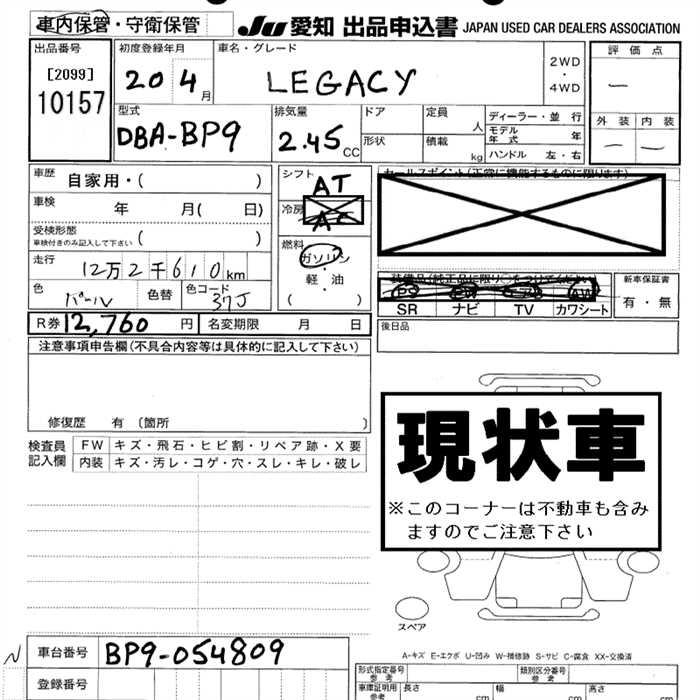 車内保管・守衛保管
JU 愛知 出品申込書 JAPAN USED CAR DEALERS ASSOCIATION
出品番号
[2099]
10157
初度登録年月
20 4月
車名・グレード
LEGACY
2WD
・
4WD
評価点
—
外装 内装
— —
型式
DBA-BP9
排気量
2.45 CC
ドア
形状
定員 人
積載 kg
ディーラー・並行
モデル年式 年
ハンドル 左・右
車歴 自家用・( )
車検 年 月( 日)
受検形態
車検付きのみ記入して下さい ( )
走行 12万2千610km
色 パール 色替 色コード 37J
シフト AT
冷房 AC
燃料
ガソリン
・
軽・油
( )
セールスポイント(正常に機能するものに限ります)
SR ナビ TV カワシート
新車保証書
有・無
R券 12,760円 名変期限 月 日
後日品
注意事項申告欄(不具合内容等は具体的に記入して下さい)
修復歴 有 〔箇所 〕
検査員記入欄
FW キズ・飛石・ヒビ割・リペア跡・X要
内装 キズ・汚レ・コゲ・穴・スレ・キレ・破レ
現状車
※このコーナーは不動車も含み
ますのでご注意下さい
スペア
A-キズ E-エクボ U-凹み W-補修跡 S-サビ C-腐食 XX-交換済
車台番号 BP9-054809
登録番号
形式指定番号 参考
類別区分番号 参考
車庫証明用 参考 長さ cm 幅 cm 高さ cm